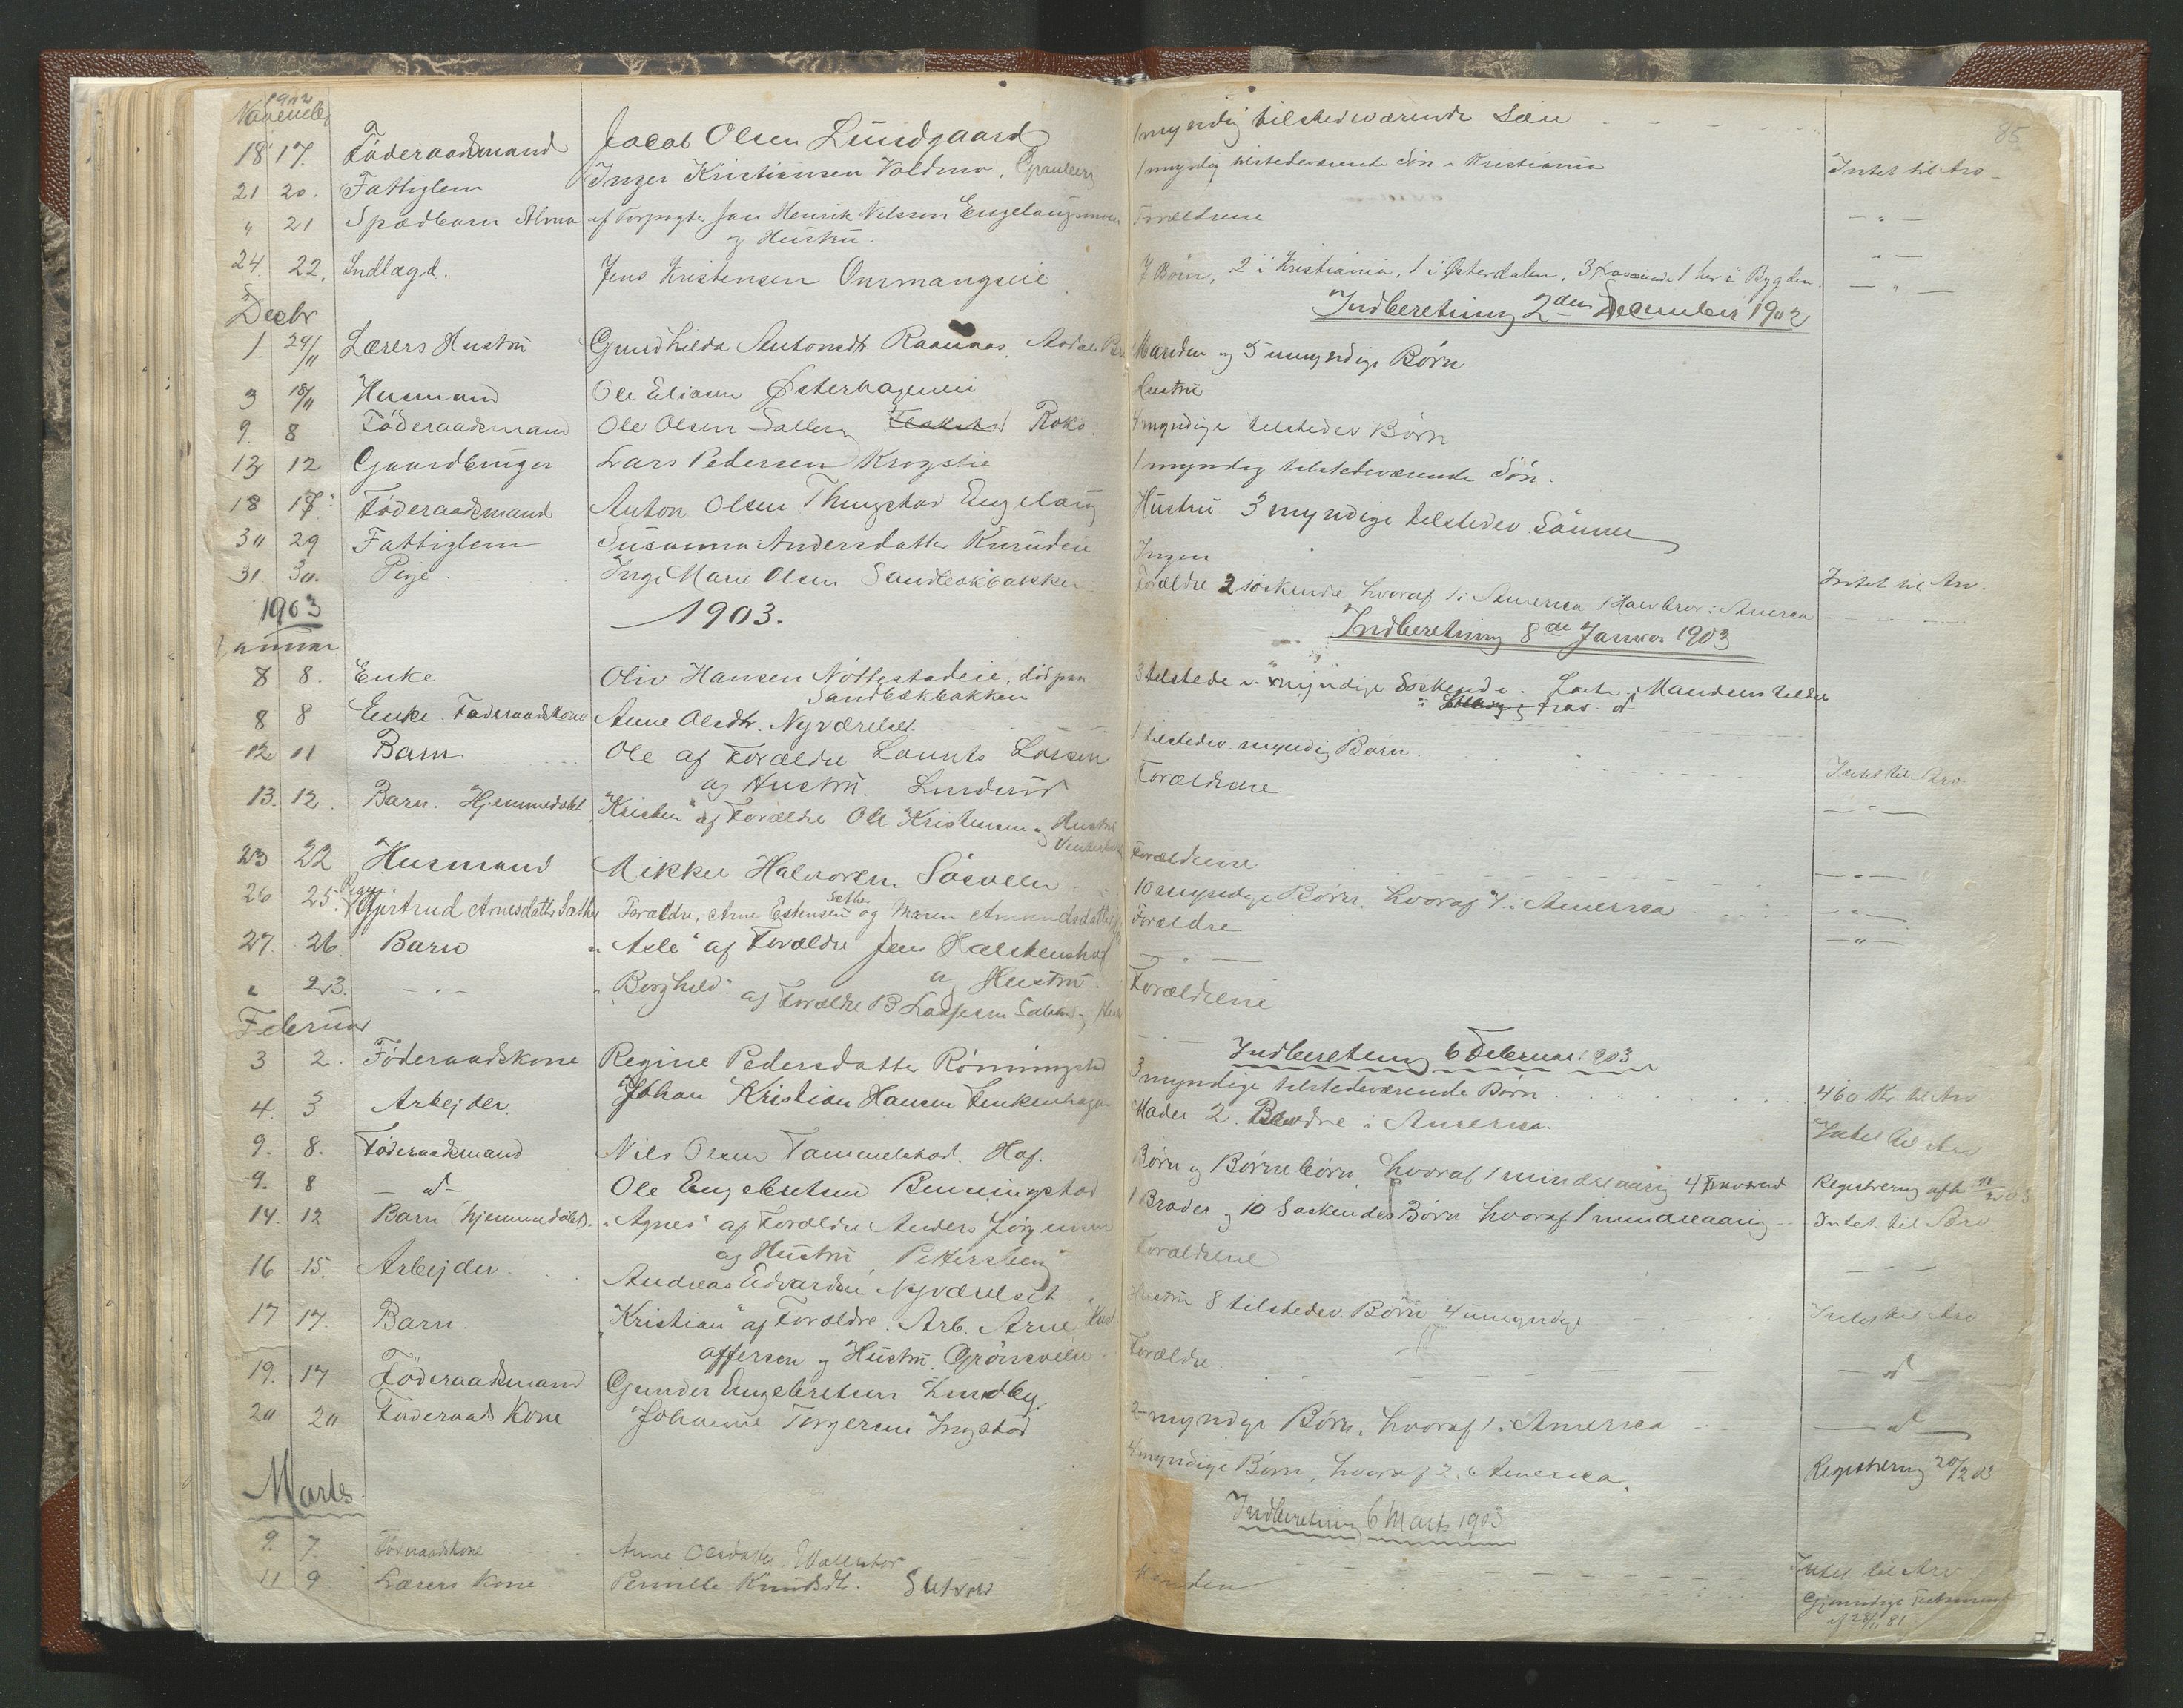 1902
November
18 17. Föderaadsmand Jacob Olsen Lundgaard
21 20. Fattiglem Inger Kristiansen Voldmo, Granberg
" 21 Spædbarn Alma af Forpagter Jan Henrik Nilsson Engelaugsmoen
og Hustru.
24. 22. Indlagd. Jens Kristensen Ommangseie
Decbr
1. 24/11 Lærers Hustru Gundhilda Antonsdtr Raaunaas, Aadals Br
3 18/11 Husmand Ole Eliasen Østerhageneie
9. 8 Föderaadsmand Ole Olsen Roko.
13 12 Gaardbruger Lars Pedersen Krogstie
18 17. Föderaadsmand Anton Olsen Thingstad Engelaug
30 29 Fattiglem Susanna Andersdatter Knrudeie
31 30. Pige Inga Marie Olsen Sandbækbakken
1903 1903.
Januar
8 8. Enke Oliv Hansen Nöttestadeie, död paa
Sandbækbakken
8 8 Enke Föderaadskone Anne Olsdtr. Nyværelset
12 11 Barn Ole af Forældre Larsen
og Hustru. Linderud
13. 12. Barn. Hjemmedøbt "Kristen" af Forældre Ole Kristensen og Hustru
23 22 Husmand Mikkel Halvorsen Sösveen
26 25. Pigen Gjertrud Arnesdatter Sæther Forældre, Arne Estensen Sæther og Maren Amundsdatter
27. 26. Barn "Asle" af Forældre Jens Halstenshof
og Hustru.
" 23. — " — "Borghild" af Forældre B
Februar
3 2. Föderaadskone Regine Pedersdatter Rönningstad
4. 3. Arbejder. Johan Kristian Hansen Finkenhagen
9. 8. Föderaadsmand Nils Olsen Tommelstad. Hof.
9. 8 — d — Ole Engebretsen Benningstad
14. 12 Barn (hjemmedöbt). "Agnes" af Forældre Anders Jörgensen
og Hustru, Pettersberg
16 15. Arbejder. Andreas Edvardsen Nyværelset
17 17. Barn. "Kristian" af Forældre. Arb. Arne Krist
offersen og Hustru. Grönsveen
19. 17 Föderaadsmand Gunder Engebretsen Lundby.
20 20 Föderaads Kone Johanne Torgersen Ingstad
Marts.
9. 7. Föderaadskone Anne Olsdatter
11 9 Lærers Kone. Pernille Knudsdtr.
85
1 myndig tilstedeværende Søn
1 myndig tilstedeværende Sön i Kristiania Intet til Arv
Forældrene — " —
7 Börn, 2 i Kristiania, 1 i Østerdalen, 3 fraværende 1 her i Bygden. — " —
Indberetning 2den December 1902
Manden og 5 umyndige Börn
Hustru
4 myndige tilstedev Börn
1 myndig tilstedeværende Sön.
Hustru 3 myndige tilstedev. Sönner
Ingen Intet til Arv.
Forældre 2 söskende hvoraf 1 i America 1 Halvbror i America
Indberetning 8de Januar 1903
3 tilstedev. myndige Söskende.
1 tilstedev. myndig Barn. Intet til Arv.
Forældrene — " —
Forældrene — " —
10 myndige Börn, hvoraf 4 i America — " —
Forældre — " —
— " —
Forældrene
Indberetning 6 Februar 1903
3 myndige tilstedeværende Börn 460 Kr. til Arv
Moder 2 Brødre i America. Intet til Arv
Börn og Börnebörn, hvoraf 1 mindreaarig 4 fraværend Registrering afh
1 Broder og 10 Søskendes Børn hvoraf 1 mindreaarig Intet til Arv.
Forældrene
Hustru 8 tilstedev. Börn 4 umyndige Intet til Arv
Forældre. — d —
2 myndige Börn, hvoraf 1 i America — d —
4 myndige Börn, hvoraf 2 i America. Registrering 20/2 03
Indberetning 6 Marts 1903
Intet til Arv
Manden Gjensidige Testament
af 28/11 81